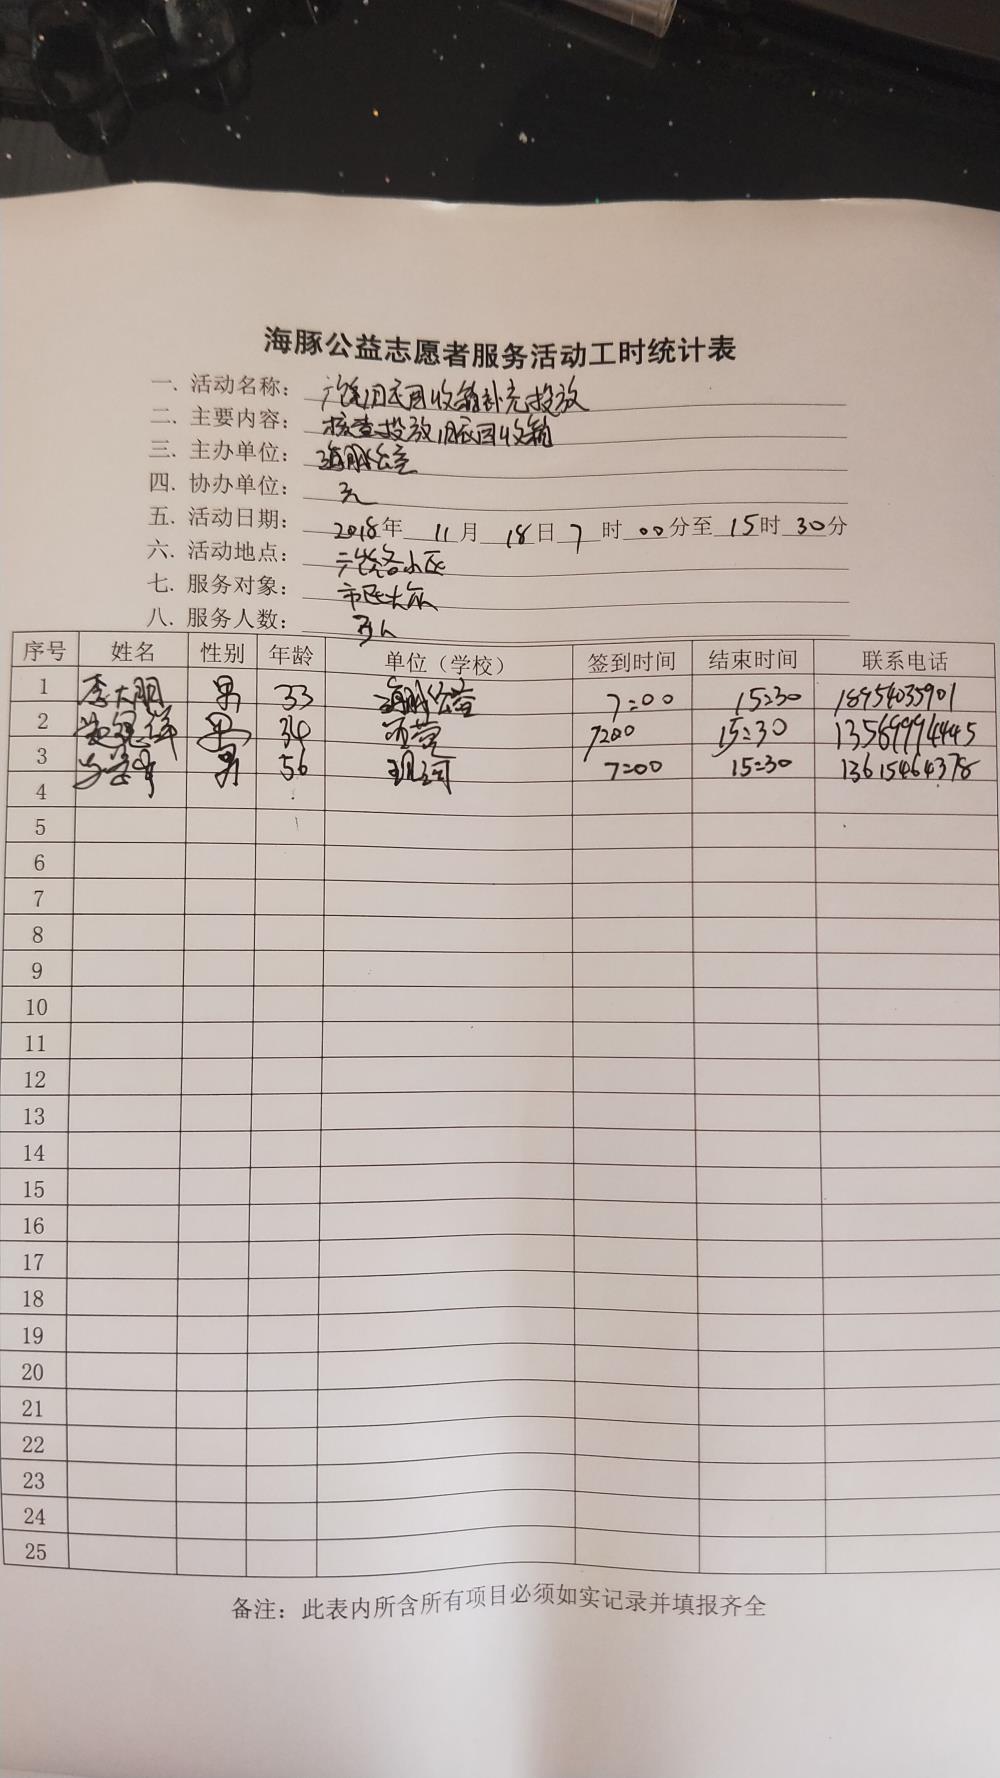 海豚公益志愿者服务活动工时统计表
一. 活动名称: 广饶旧衣回收箱补充投放
二. 主要内容: 核查投放旧衣回收箱
三. 主办单位: 海豚公益
四. 协办单位: 无
五. 活动日期: 2018年 11月 18日 7时 00分至 15时 30分
六. 活动地点: 广饶各小区
七. 服务对象: 市民大众
八. 服务人数: 万人
序号 姓名 性别 年龄 单位（学校） 签到时间 结束时间 联系电话
1 李大鹏 男 33 海豚公益 7:00 15:30 18954035901
2 男 34 7:00 15:30 13569994445
3 男 56 7:00 15:30 13615464378
4
5
6
7
8
9
10
11
12
13
14
15
16
17
18
19
20
21
22
23
24
25
备注：此表内所含所有项目必须如实记录并填报齐全